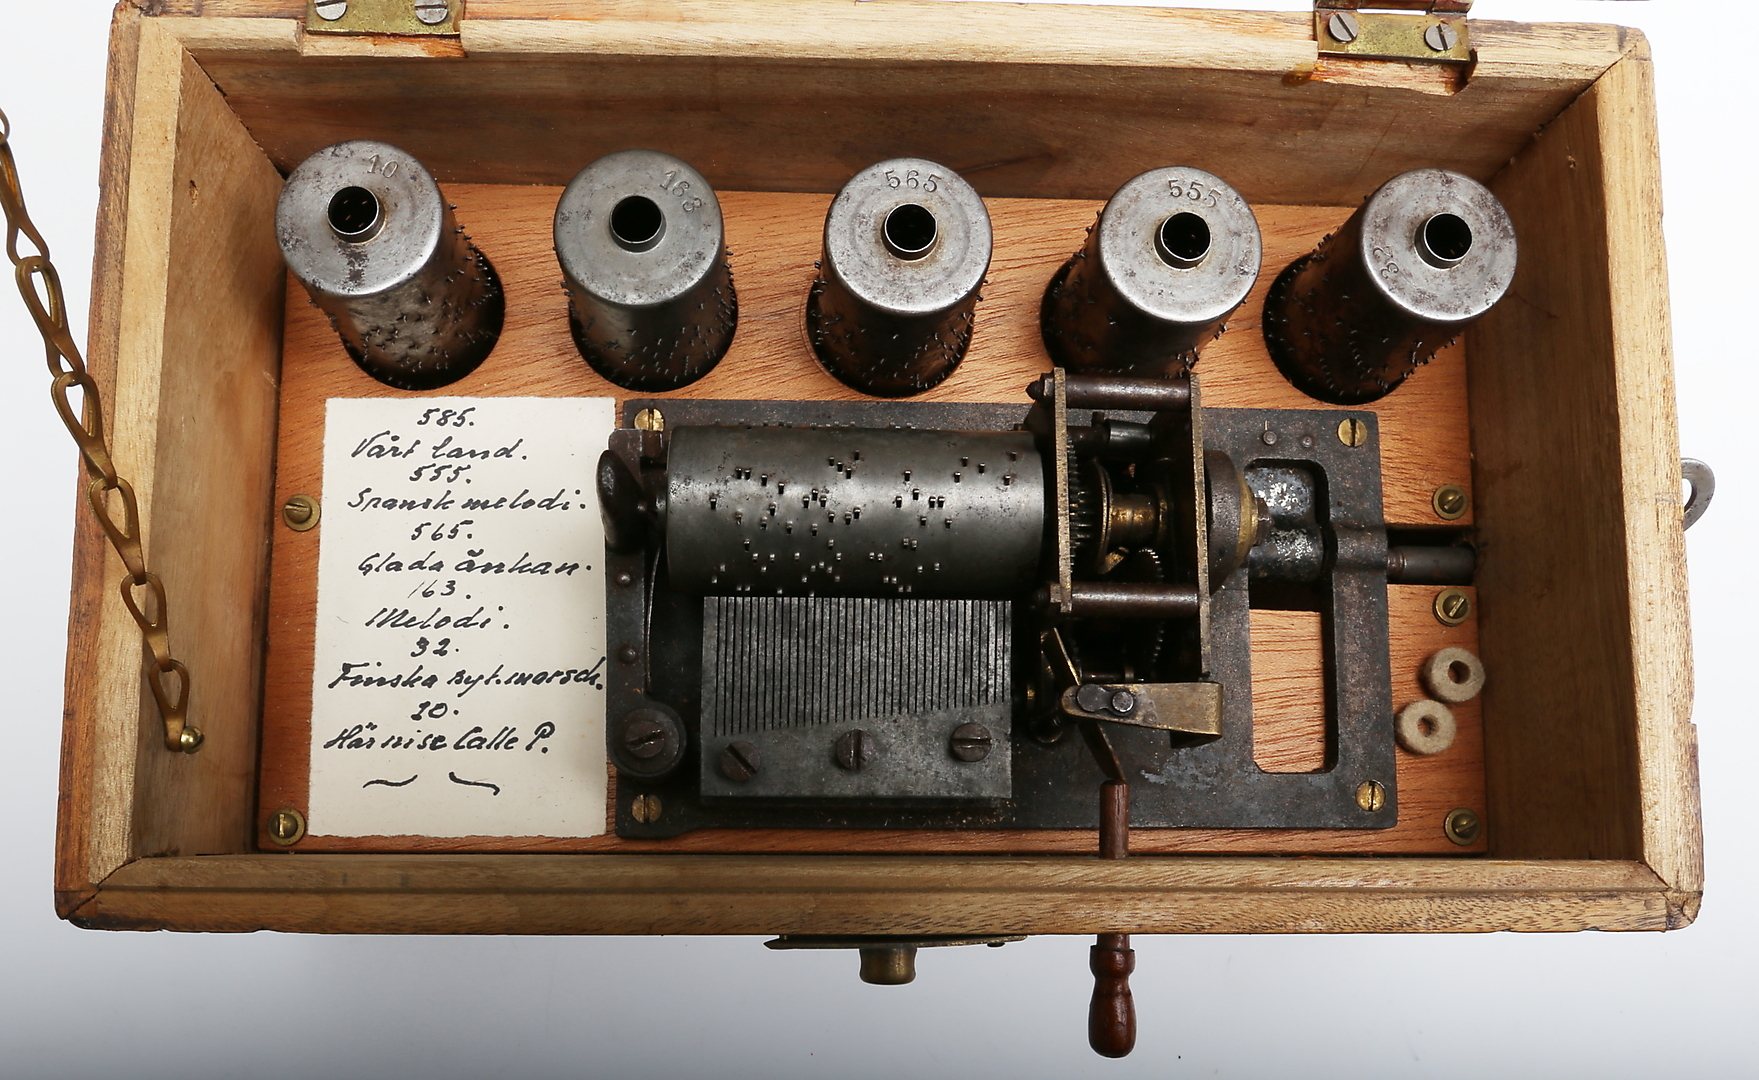 10
163
565
555
32
585.
Vårt land.
555.
Spansk melodi.
565.
Glada änkan.
163.
Melodi.
32.
Finska ryt. marsch.
10.
Calle P.